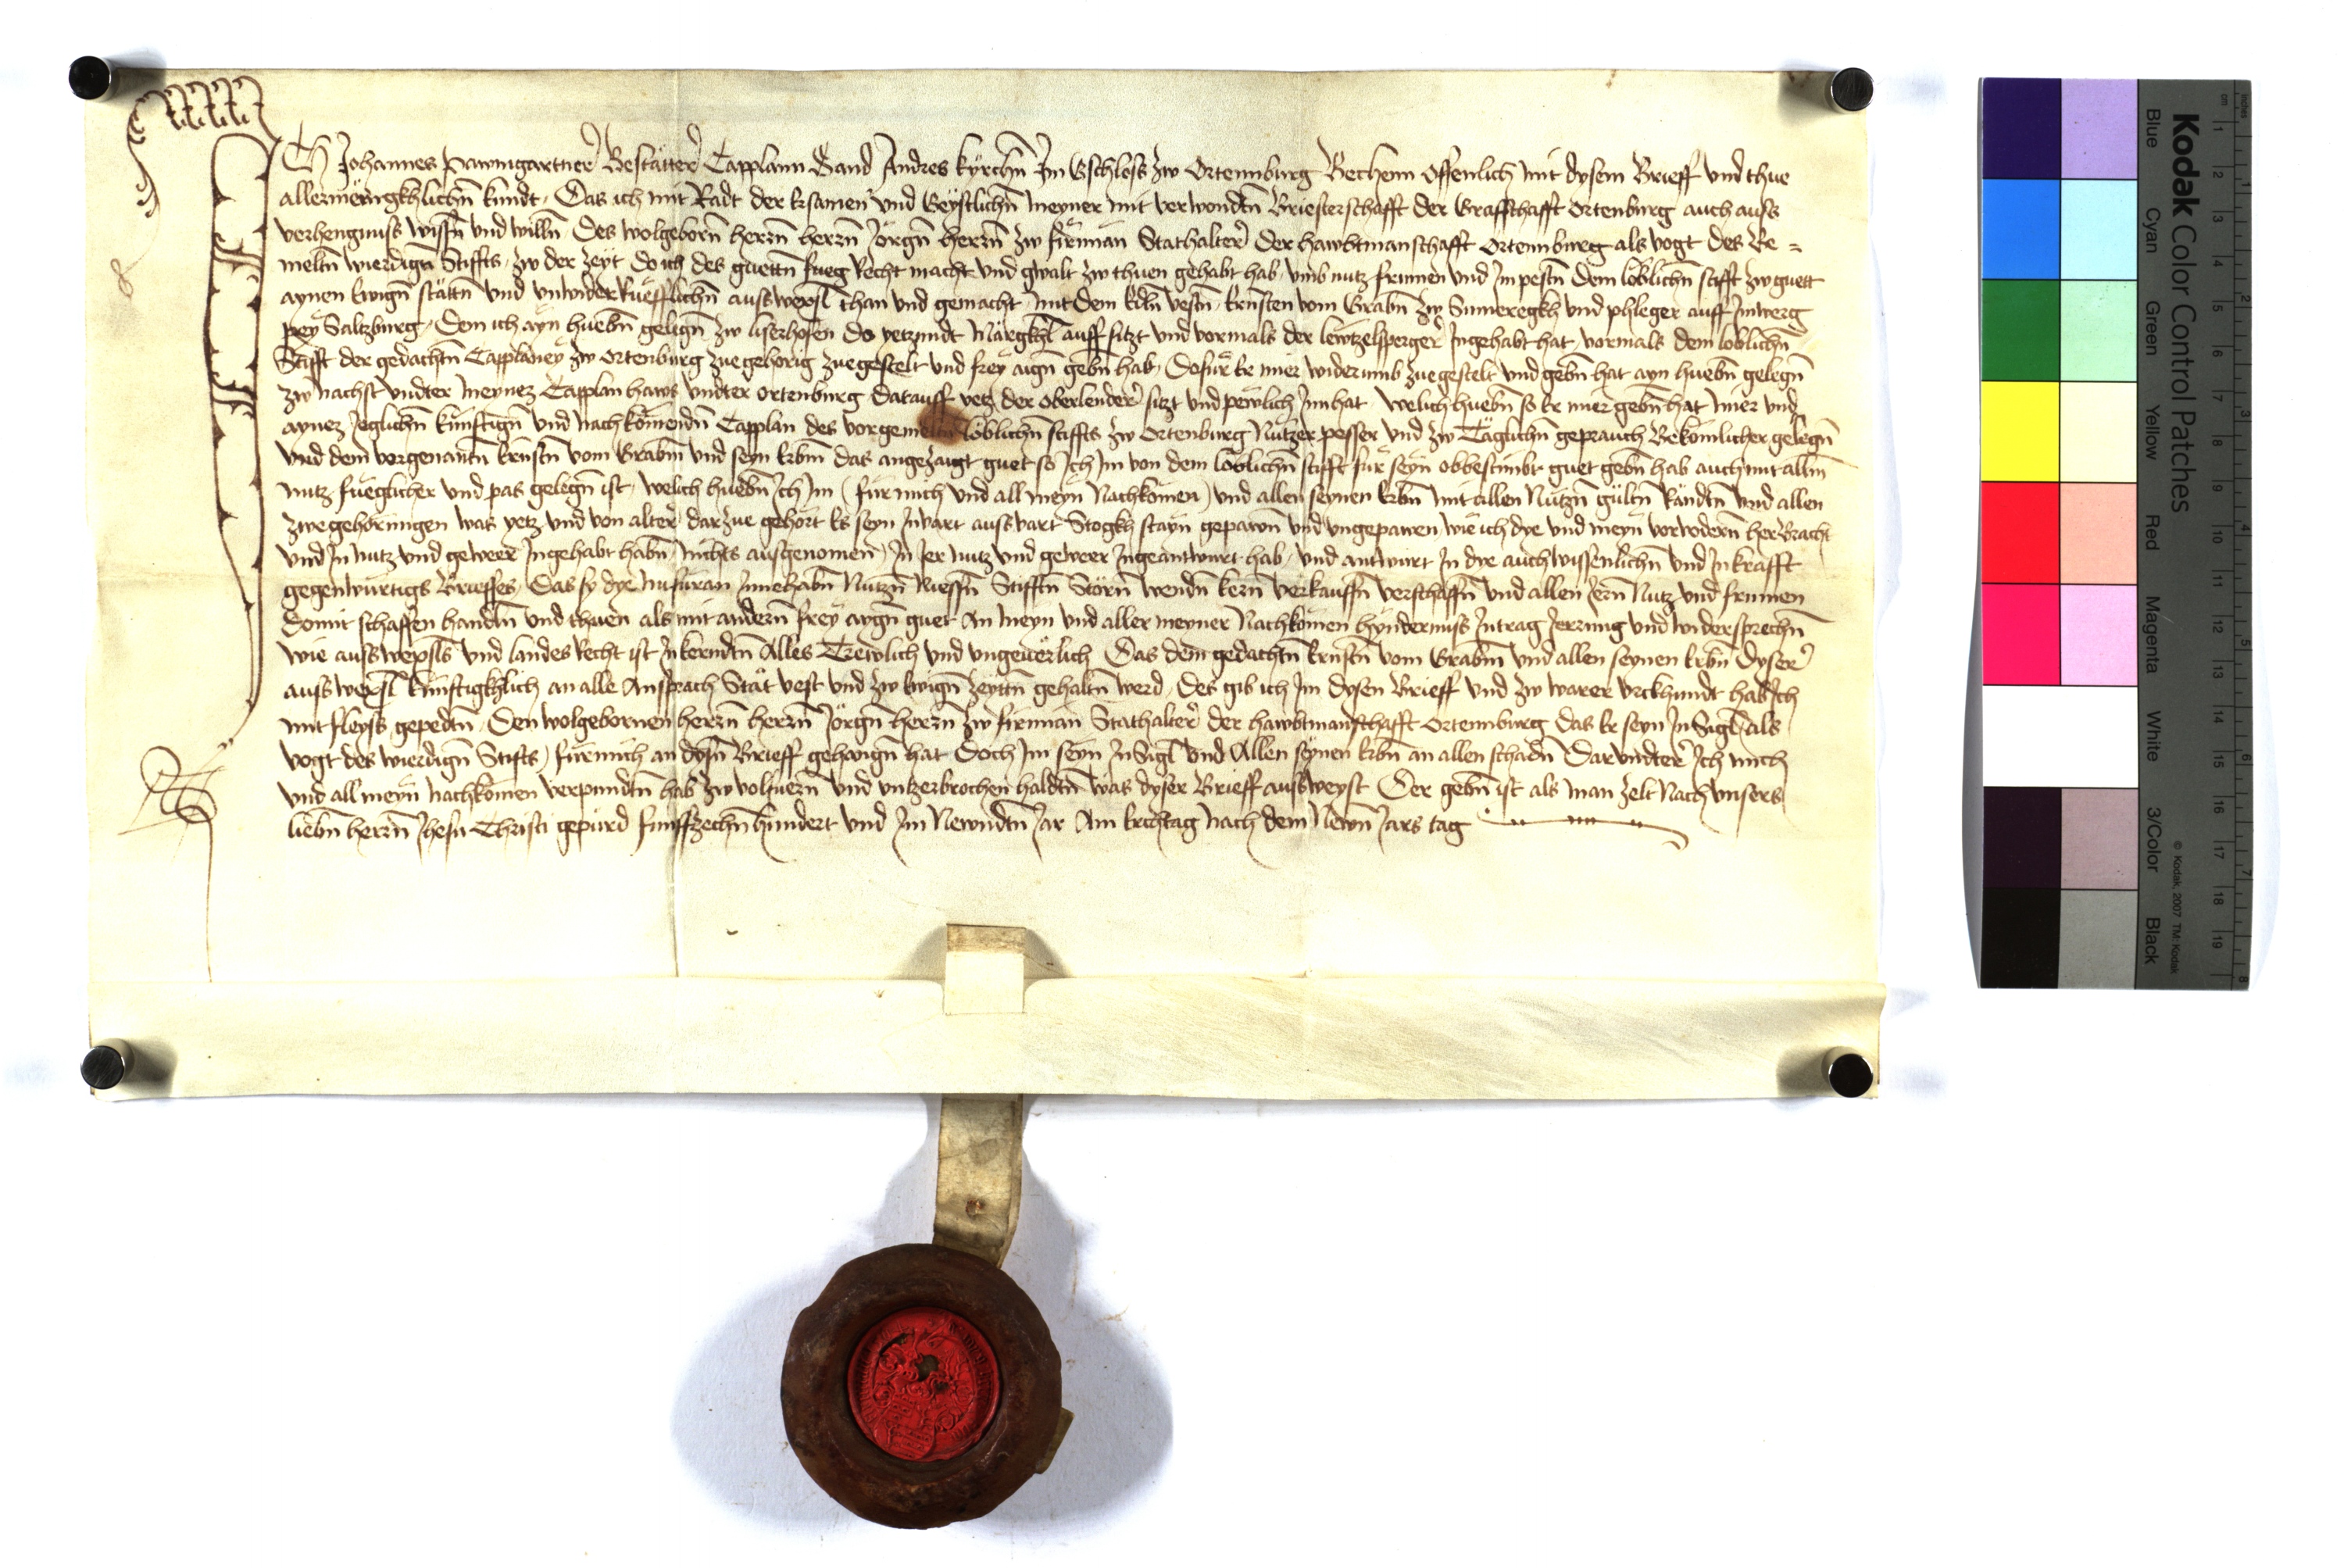 Ich Johannes Pawmgartner Bestätter Capplann Sand Andres kyrchn Im Gschloss zw Ortennburg Bechenn Offenlich mit dysem Brieff und thue
allermenigkhlichn kundt, Das ich mit Radt der Ersamen und Geystlichn meyner mit verwondtn Briesterschafft der Graffschafft Ortenburg auch auss
verhengnuss wissn und willn Des wolgeborn herrn herrn Jörgn herrn zw firmian Stathalter der hawbtmanschafft Ortennburg als vogt des Be=
meltn wierdign Stiffts, zw der zeyt do ich des guettn fueg Recht macht und gwalt zw thuen gehabt hab, umb nutz frumen und Im pestn Dem löblichn stifft zw guett
aynen Ewign stättn und unwiderRuefflichn ausswexsl than und gemacht mit dem Edln vestn, Ernsten vom Grabn zw Sumeregkh und phleger auff Inwerg
pey Saltzburg, Dem ich ayn huebn gelegn zw liserhofen do yetzundt Märgkhl auff sitzt und vormals der lewtzelsperger Ingehabt hat vormals dem loblichn
Stifft der gedachtn Capplaney zw Ortenburg zuegehörig zuegestelt und frey aign gebn hab, Dofür Er mier widerumb zuegestelt und gebn hat ayn huebn gelegn
zw nachst undter meynez Capplan haws undter Ortenburg darauff yetz der Oberlender sitzt und pewlich Innhat welich huebn so Er mier gebn hat mier und
aynez Jeglichn künfftign und nachkomendn Capplan des vorgemeltn löblichn stiffts zw Ortenburg Nützer pesser und zw Täglichn geprauch Bekomlicher gelegn
und dem vorgenantn Ernstn vom Grabnn und seyn Erbnn das angezaigt guet so Ich Im von dem löblichn stifft für seyn obbestimbt guet gebn hab auch mit allm
nutz fueglicher und pas gelegn ist, welich huebn Ich Im (für mich und all meyn Nachkomen) und allen seynen Erbn mit allen Nützn gültn Rändtn und allen
zwegehörungen was yetz und von alter darzue gehört Es seyn Invart aussvart Stogkh stayn gepawn und ungepawen wie ich dye und meyn vorvodern herBracht
und In nutz und geweer Ingehabt habn, nichts ausgenomen, In Ier nutz und geweer Ingeantwurt hab, und antwurt In dye auch wissenlichn und In krafft
gegenwürtigs Brieffes, Das sy dye nufüran Innehabn Nützn Niessn Stifftn Störn wendn kern verkauffn verschaffn und allen Iern Nutz und frumen
Domit schaffen handln und thuen als mit andern frey aygn guet An meyn und aller meyner Nachkomen hyndernuss Intrag Ierrung und widersprechn
wie ausswexsls und landes Recht ist In kerndtn Alles Trewlich und ungeuerlich Das dem gedachtn Ernstn vom Grabnn und allen seynen Erbn Dyser
ausswexsl künfftigkhlich an alle Ansprach Stät vest und zw Ewign zeyttn gehaltn werd, Des gib ich Im dysen Brieff und zw warer urckhundt hab Ich
mit fleyss gepedtn, Den wolgebornen herrn herrn Jörgn herrn zw firmian Stathalter der hawbtmanschafft Ortennburg das Er seyn InSigl, als
vogt des wierdign Stiffts, für mich an dysn Brieff gehangn hat Doch Im seyn InSigl und Allen seynen Erbn an allen schadn Darundter Ich mich
und all meyn nachkomen verpundtn hab zw volfuern und untzerbrochen haldtn was dyser Brieff aussweyst Der gebn ist als man zelt Nach unsers
liebn herrn Jhesu Christi gepurd funffzechn hundert und Im Newndtn Jar Am Erchtag nach dem Newn Jars tag
Kodak Color Control Patches
Blue Cyan Green Yellow Red Magenta White 3/Color Black
© Kodak, 2007 TM: Kodak
cm 1 2 3 4 5 6 7 8 9 10 11 12 13 14 15 16 17 18 19
inches 1 2 3 4 5 6 7 8